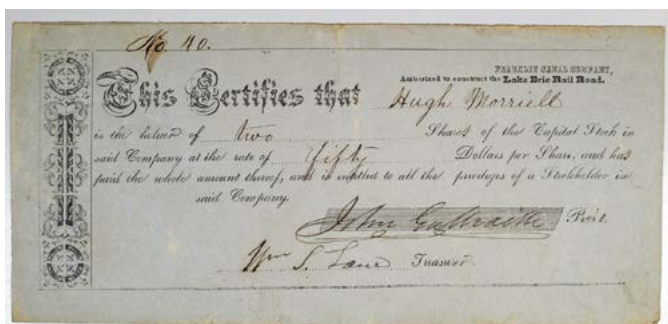 No 40.
FRANKLIN CANAL COMPANY,
Authorized to construct the Lake Erie Rail Road.
This Certifies that Hugh Morriell
is the holder of two Shares of the Capital Stock in
said Company at the rate of fifty Dollars per Share, and has
paid the whole amount thereof, and is entitled to all the privileges of a Stockholder in
said Company.
John Galbraith Pres't.
Wm S. Lane Treasurer.